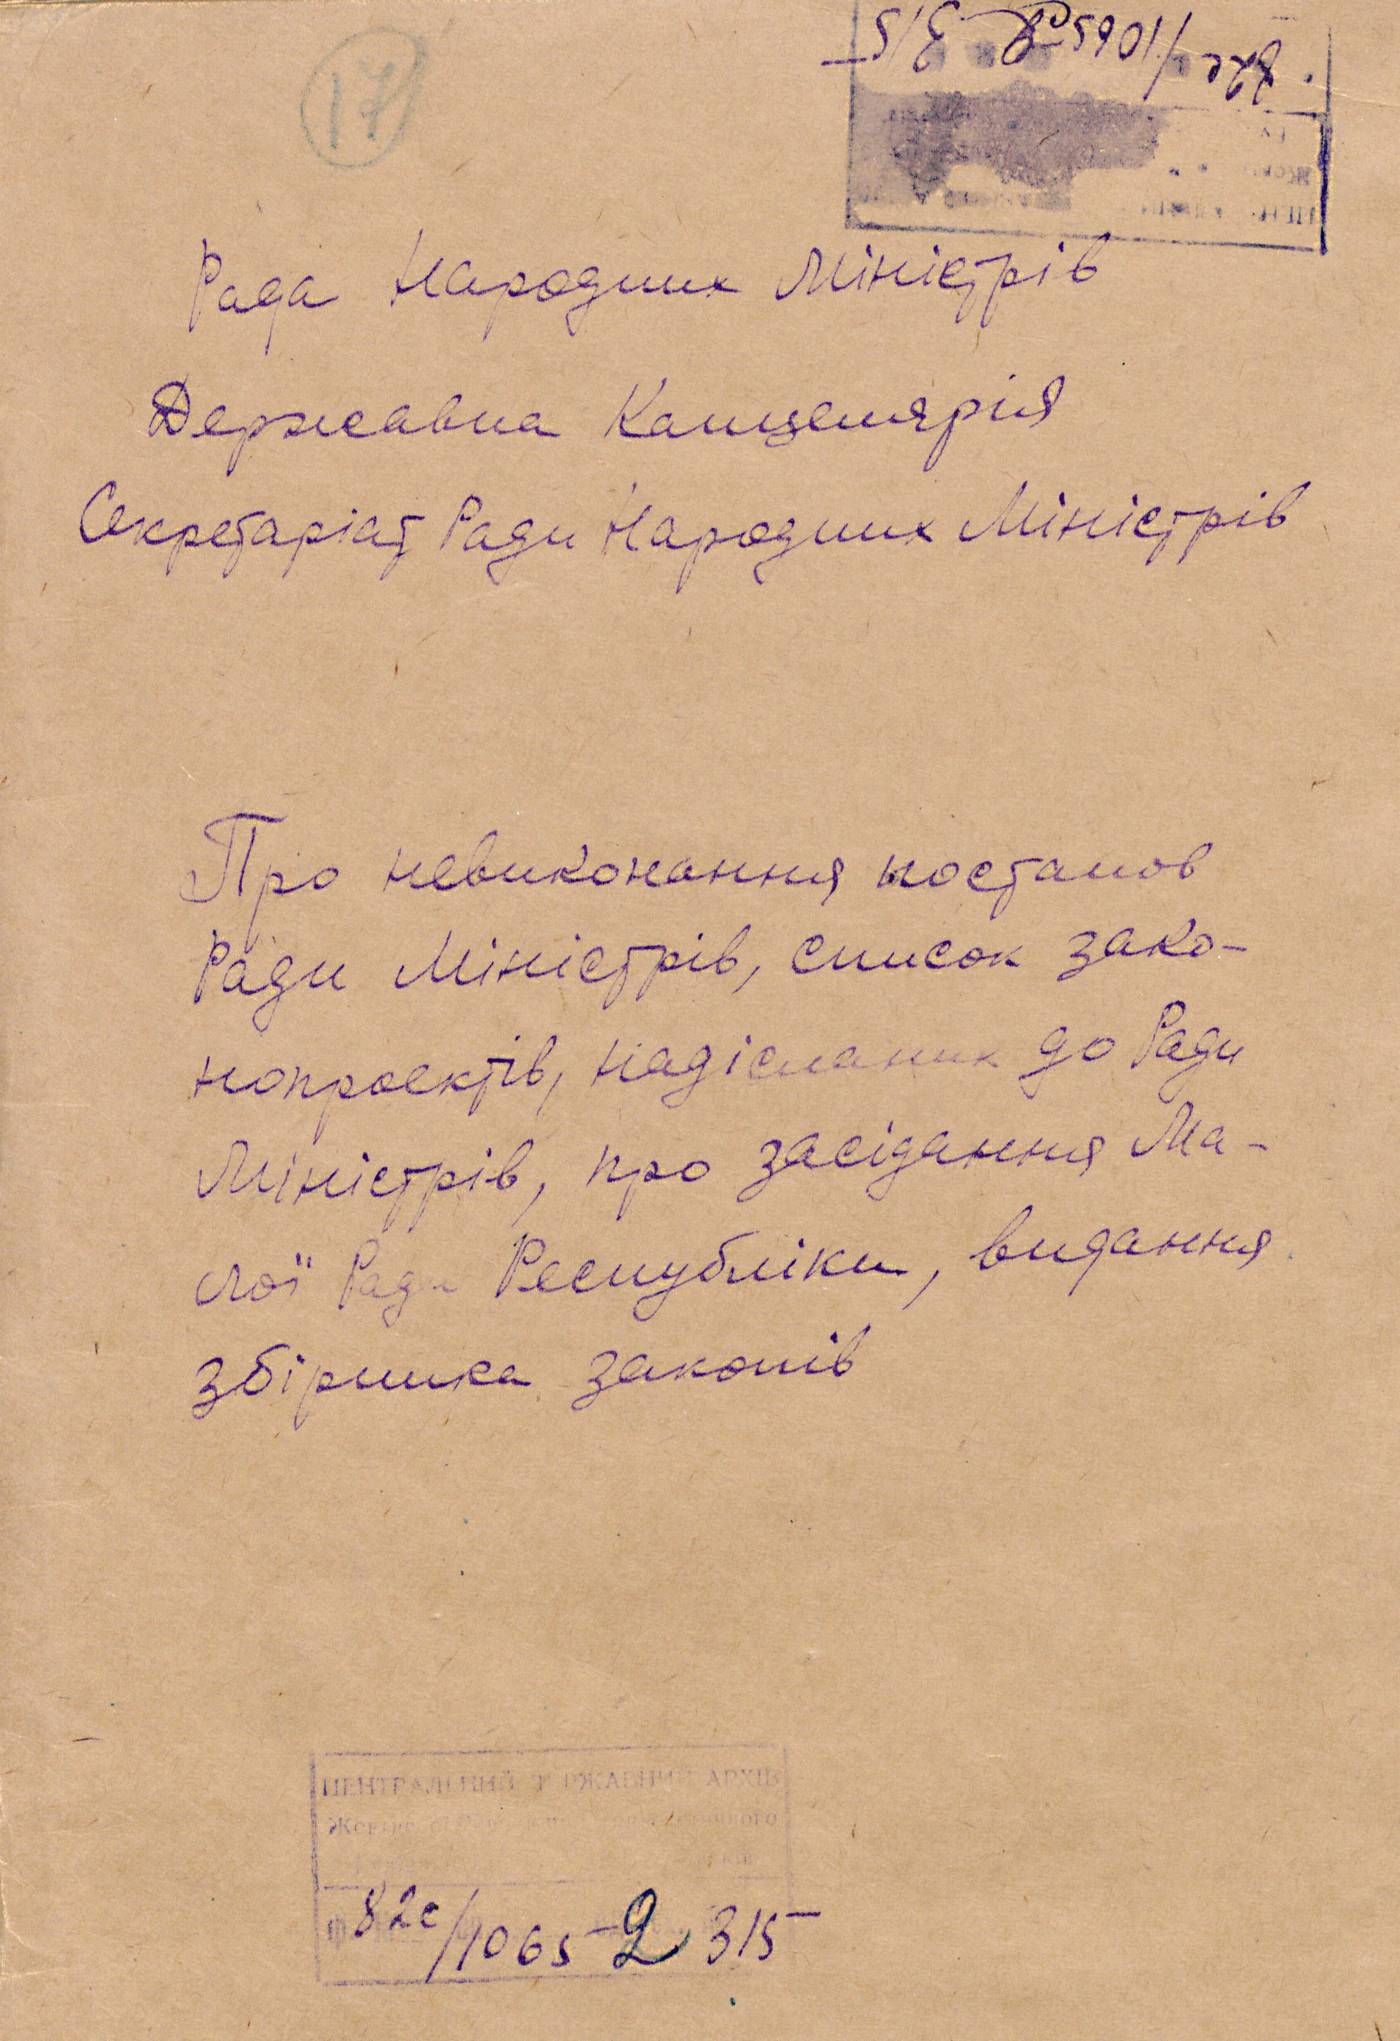 17
Рада Народних Міністрів
Державна Канцелярія
Секретаріат Ради Народних Міністрів
Про невиконання постанов
Ради Міністрів, список зако-
нопроектів, надісланих до Ради
Міністрів, про засідання Ма-
лої Ради Республіки, видання
збірника законів
ЦЕНТРАЛЬНИЙ ДЕРЖАВНИЙ АРХІВ
82с/1065 - 2 315 -